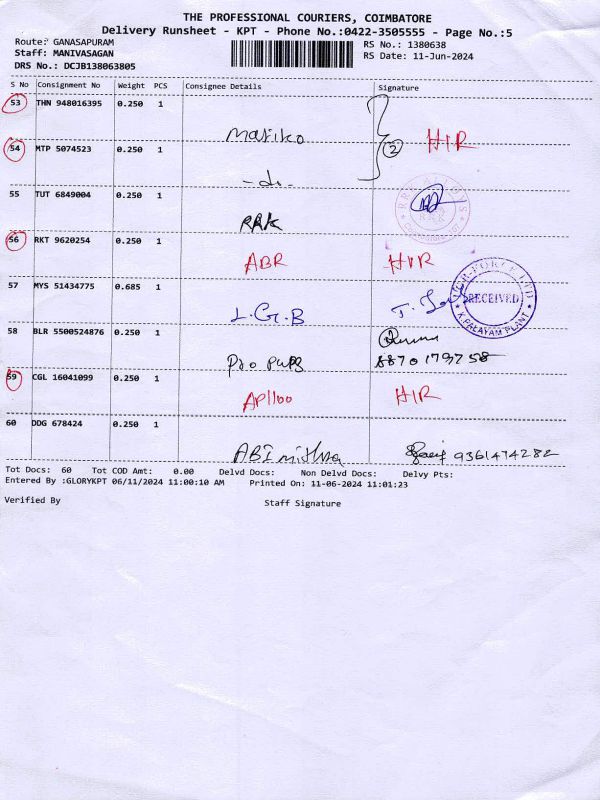 THE PROFESSIONAL COURIERS, COIMBATORE
Delivery Runsheet - KPT - Phone No.:0422-3505555 - Page No.:5
Route: GANASAPURAM
RS No.: 1380638
Staff: MANIVASAGAN
RS Date: 11-Jun-2024
DRS No.: DCJB138063805
S No Consignment No Weight PCS Consignee Details Signature
53 THN 948016395 0.250 1
Mariko
54 MTP 5074523 0.250 1 2 HIR
-do-
55 TUT 6849004 0.250 1
RRK
56 RKT 9620254 0.250 1
ABR HIR
57 MYS 51434775 0.685 1
L.G.B
RECEIVED
K PALAYAM PLANT
58 BLR 5500524876 0.250 1
Pro pumps 8870179758
59 CGL 16041099 0.250 1
Apllоо HIR
60 DDG 678424 0.250 1
ABI 9361474282
Tot Docs: 60 Tot COD Amt: 0.00 Delvd Docs: Non Delvd Docs: Delvy Pts:
Entered By :GLORYKPT 06/11/2024 11:00:10 AM Printed On: 11-06-2024 11:01:23
Verified By Staff Signature